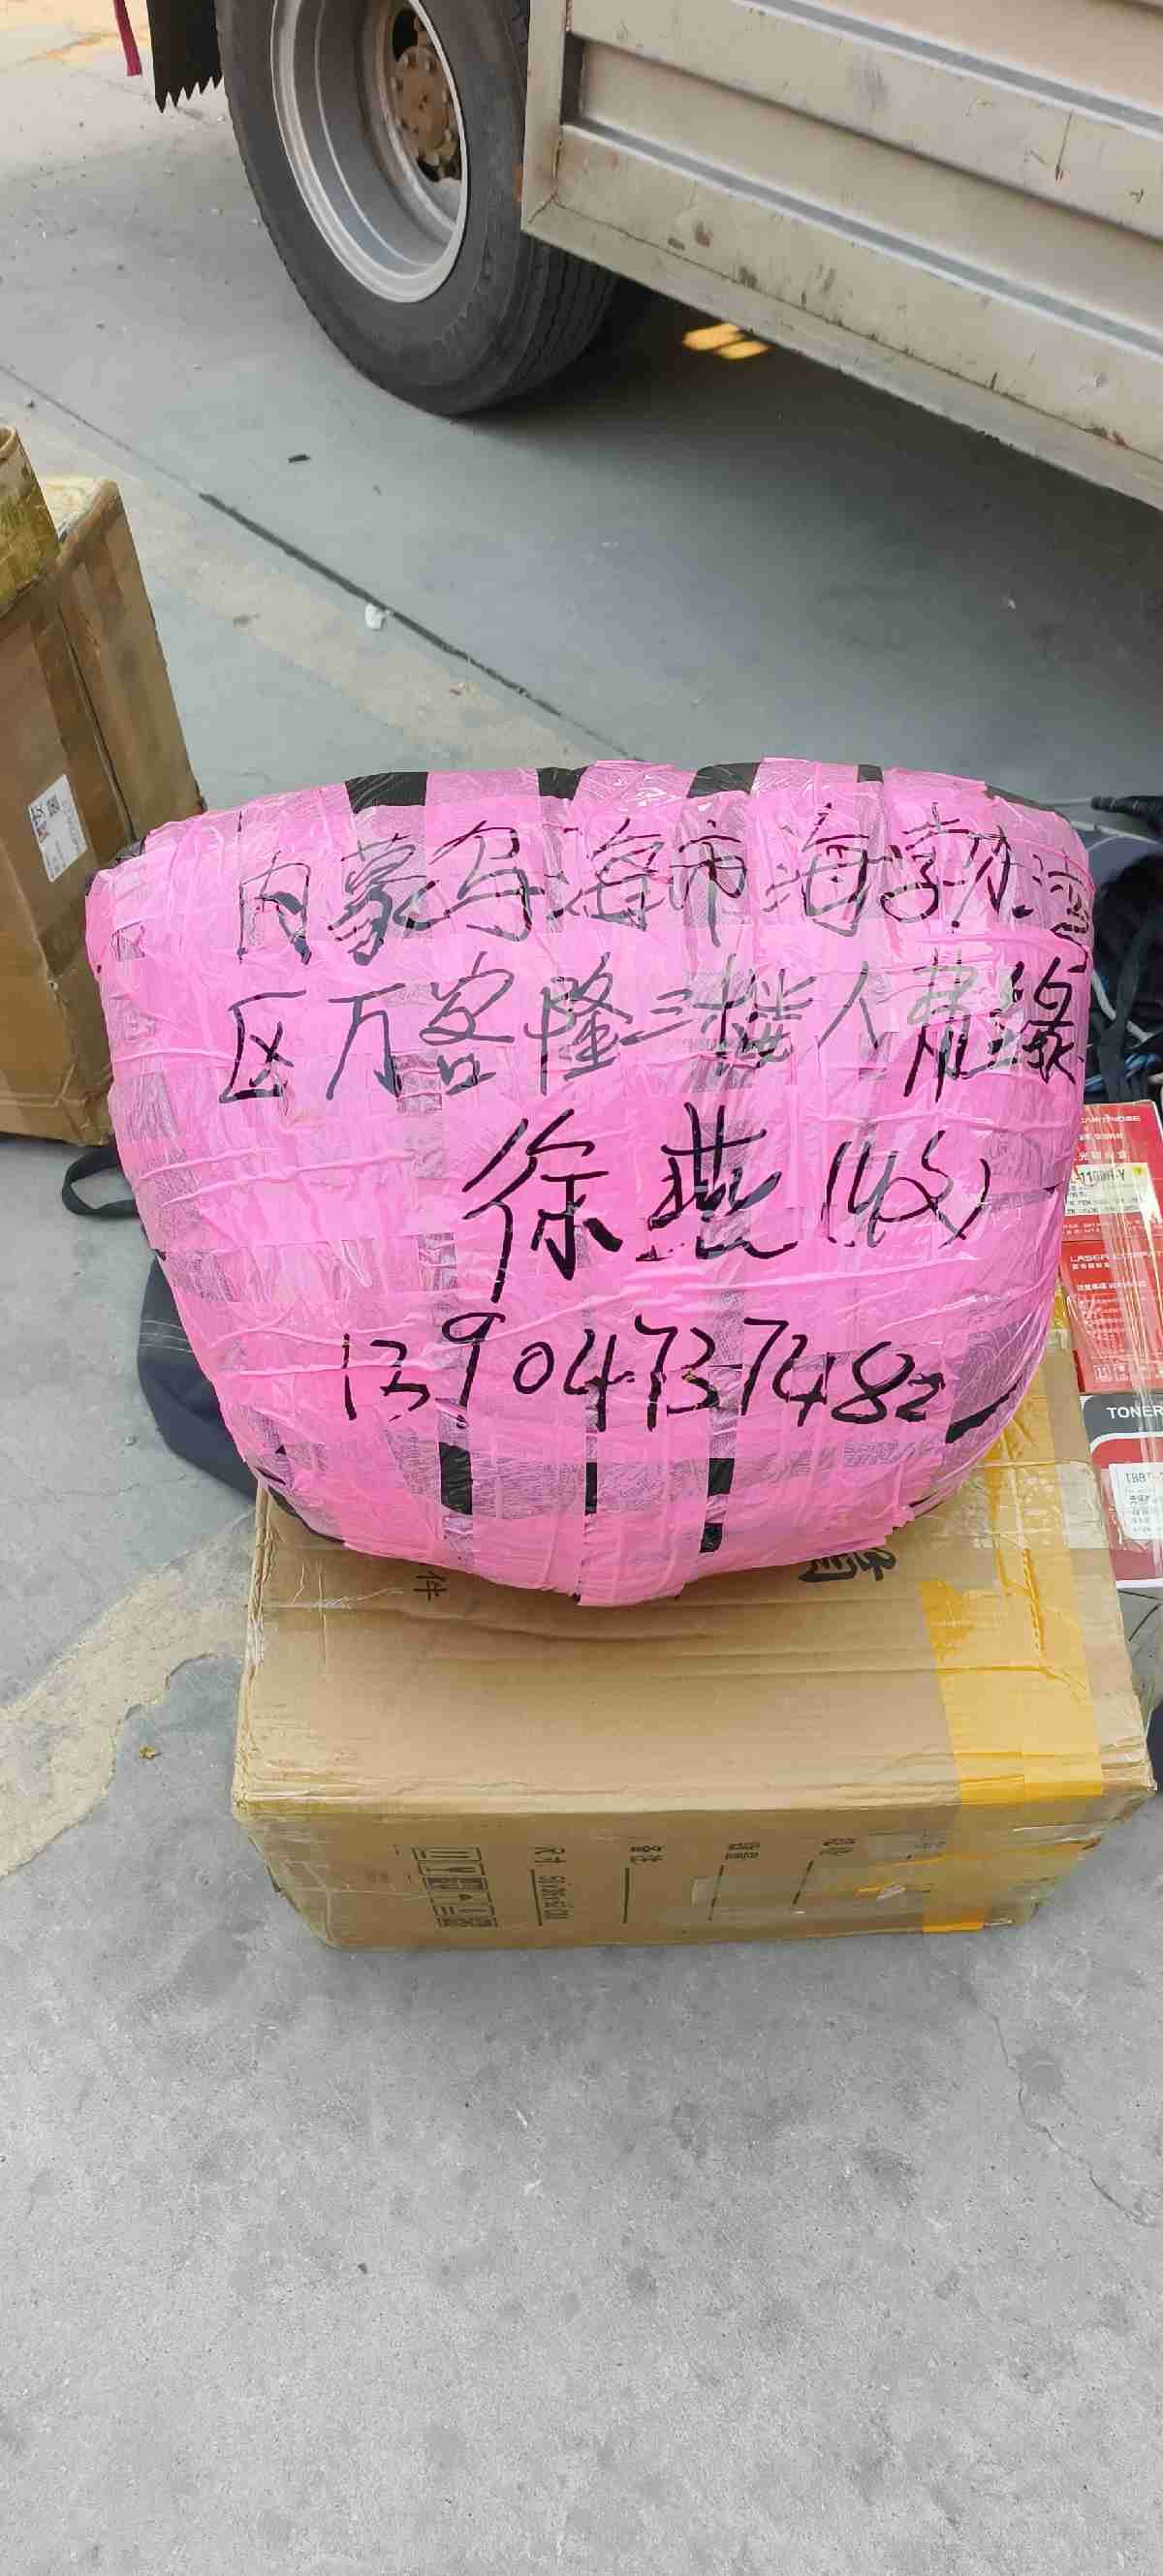 内蒙乌海市海勃湾
区万客隆三楼人甫缘
徐燕(收)
13904737482
件
TONER